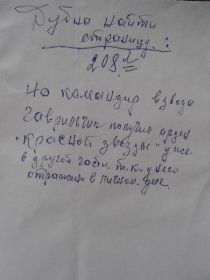 Дубно найти
страницу:
208
Но командир взвода
Гаврильчик получил орден
"Красной звезды" уже
в другой части т.к. у него
отражено в личном деле.